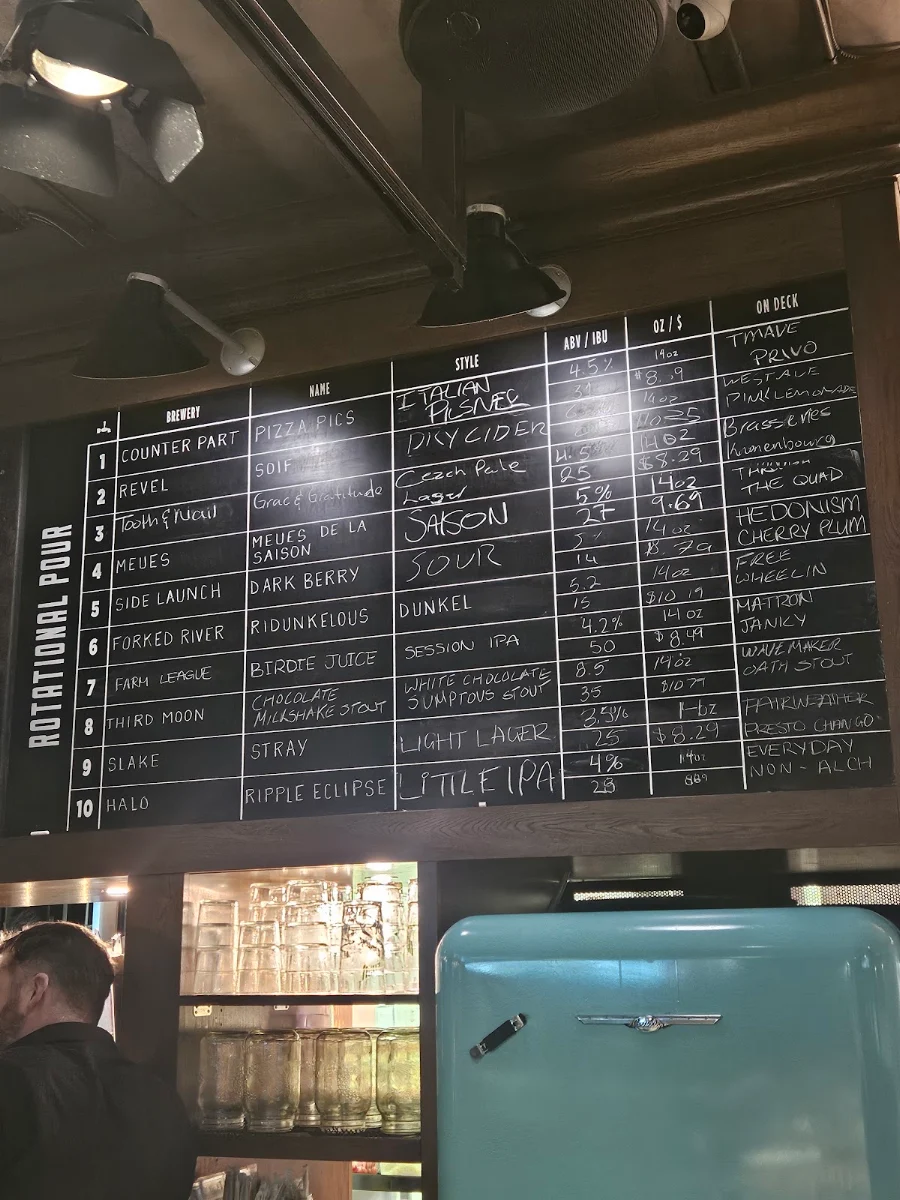 ROTATIONAL POUR
BREWERY NAME STYLE ABV / IBU OZ / $ ON DECK
1 COUNTER PART PIZZA PICS ITALIAN PILSNER 4.5% 14oz TMAVE PRIVO
2 REVEL SOIF DRY CIDER 14oz WESTALE PINK LEMONADE
3 Tooth & Nail Grace & Gratitude Czech Pale Lager 4.5% 25 14OZ $8.29 Brasseries Kronenbourg
4 MEUES MEUES DE LA SAISON SAISON 5% 27 14oz 9.69 THE QUAD
5 SIDE LAUNCH DARK BERRY SOUR 5% 14 14oz HEDONISM CHERRY PLUM
6 FORKED RIVER RIDUNKELOUS DUNKEL 5.2 15 14oz $10.19 FREE WHEELIN
7 FARM LEAGUE BIRDIE JUICE SESSION IPA 4.2% 50 14oz $8.49 MATRON JANKY
8 THIRD MOON CHOCOLATE MILKSHAKE STOUT WHITE CHOCOLATE SUMPTOUS STOUT 8.5 35 14oz $10.79 WAVEMAKER OATH STOUT
9 SLAKE STRAY LIGHT LAGER 3.5% 25 $8.29 FAIRWEATHER PRESTO CHANGO
10 HALO RIPPLE ECLIPSE LITTLE IPA 4% 28 14oz 889 EVERYDAY NON-ALCH